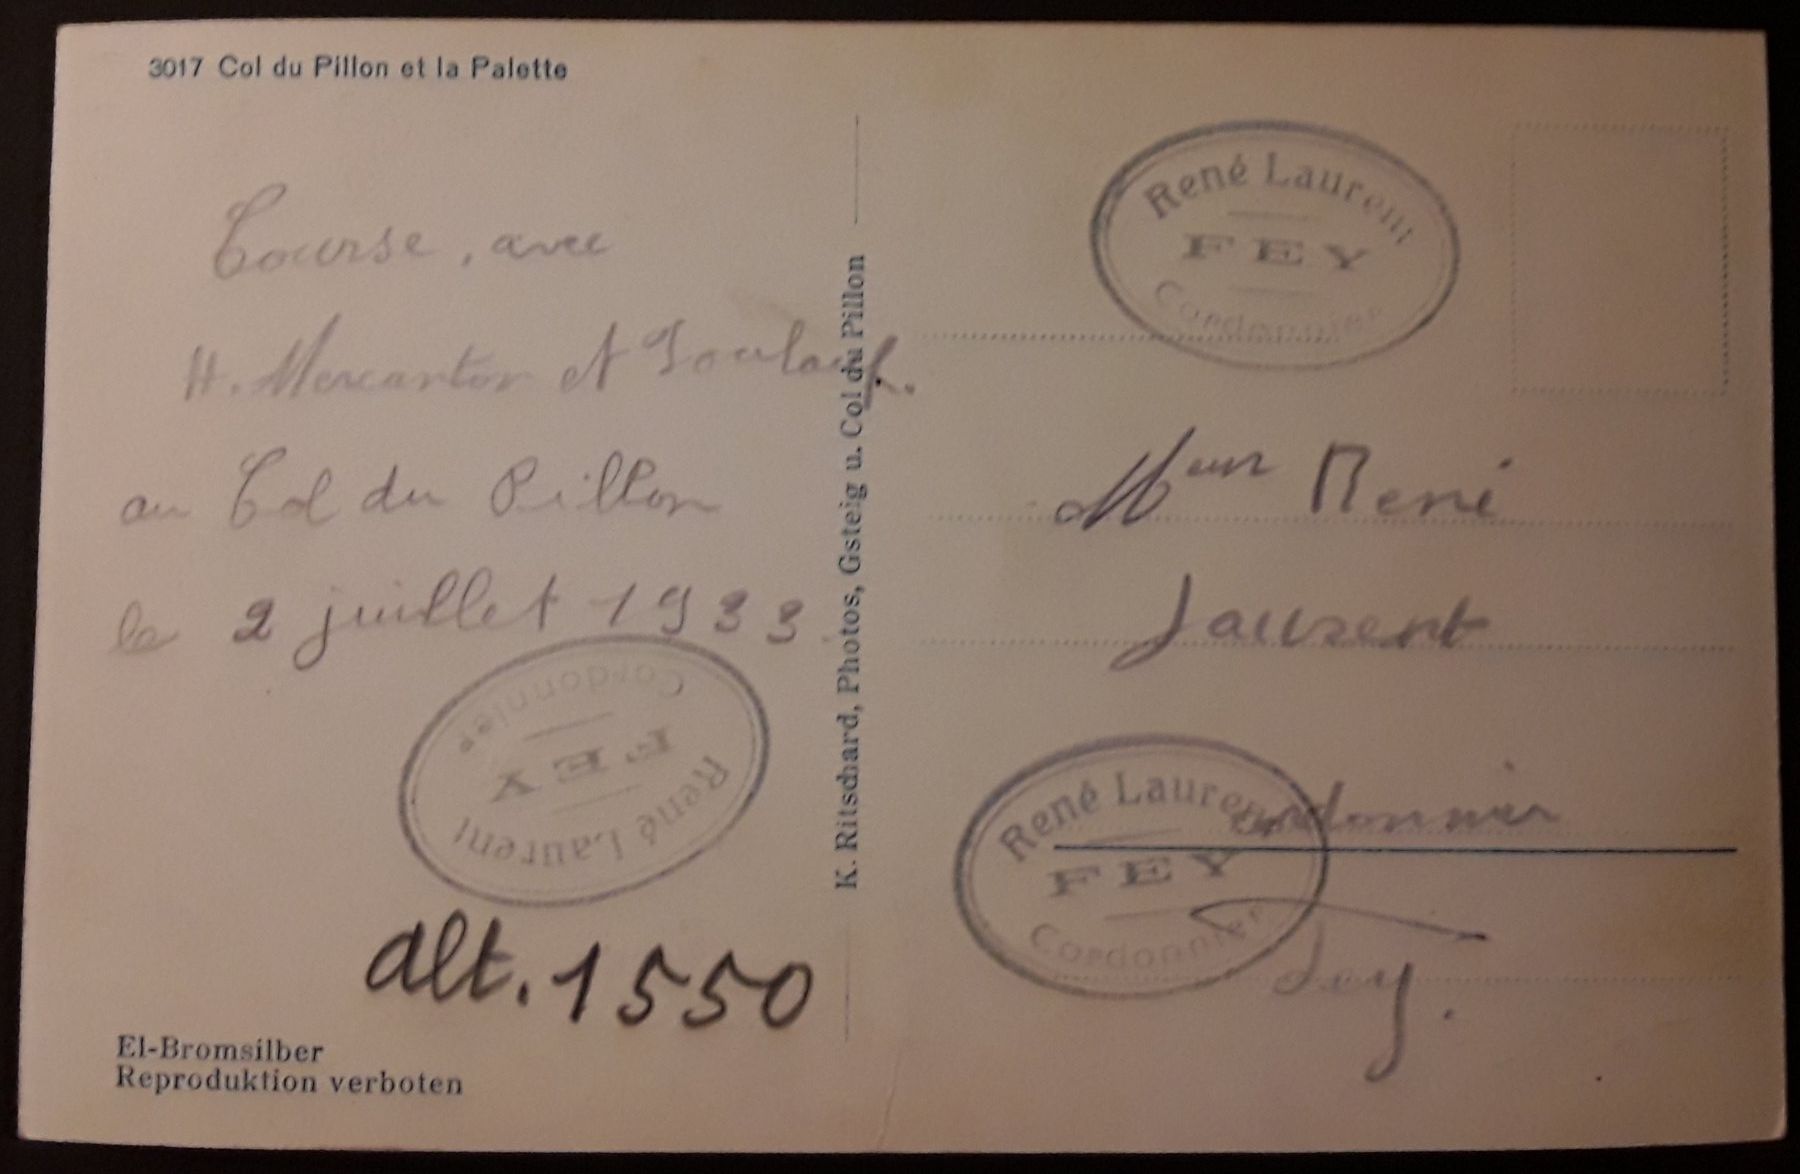 3017 Col du Pillon et la Palette
Course, avec
H. Mercanton et
au Col du Pillon
le 2 juillet 1933
René Laurent
FEY
Cordonnier
alt. 1550
El-Bromsilber
Reproduktion verboten
K. Ritschard, Photos, Gsteig u. Col du Pillon
René Laurent
FEY
Cordonnier
Meur René
Laurent
cordonnier
Fey.
René Laurent
FEY
Cordonnier